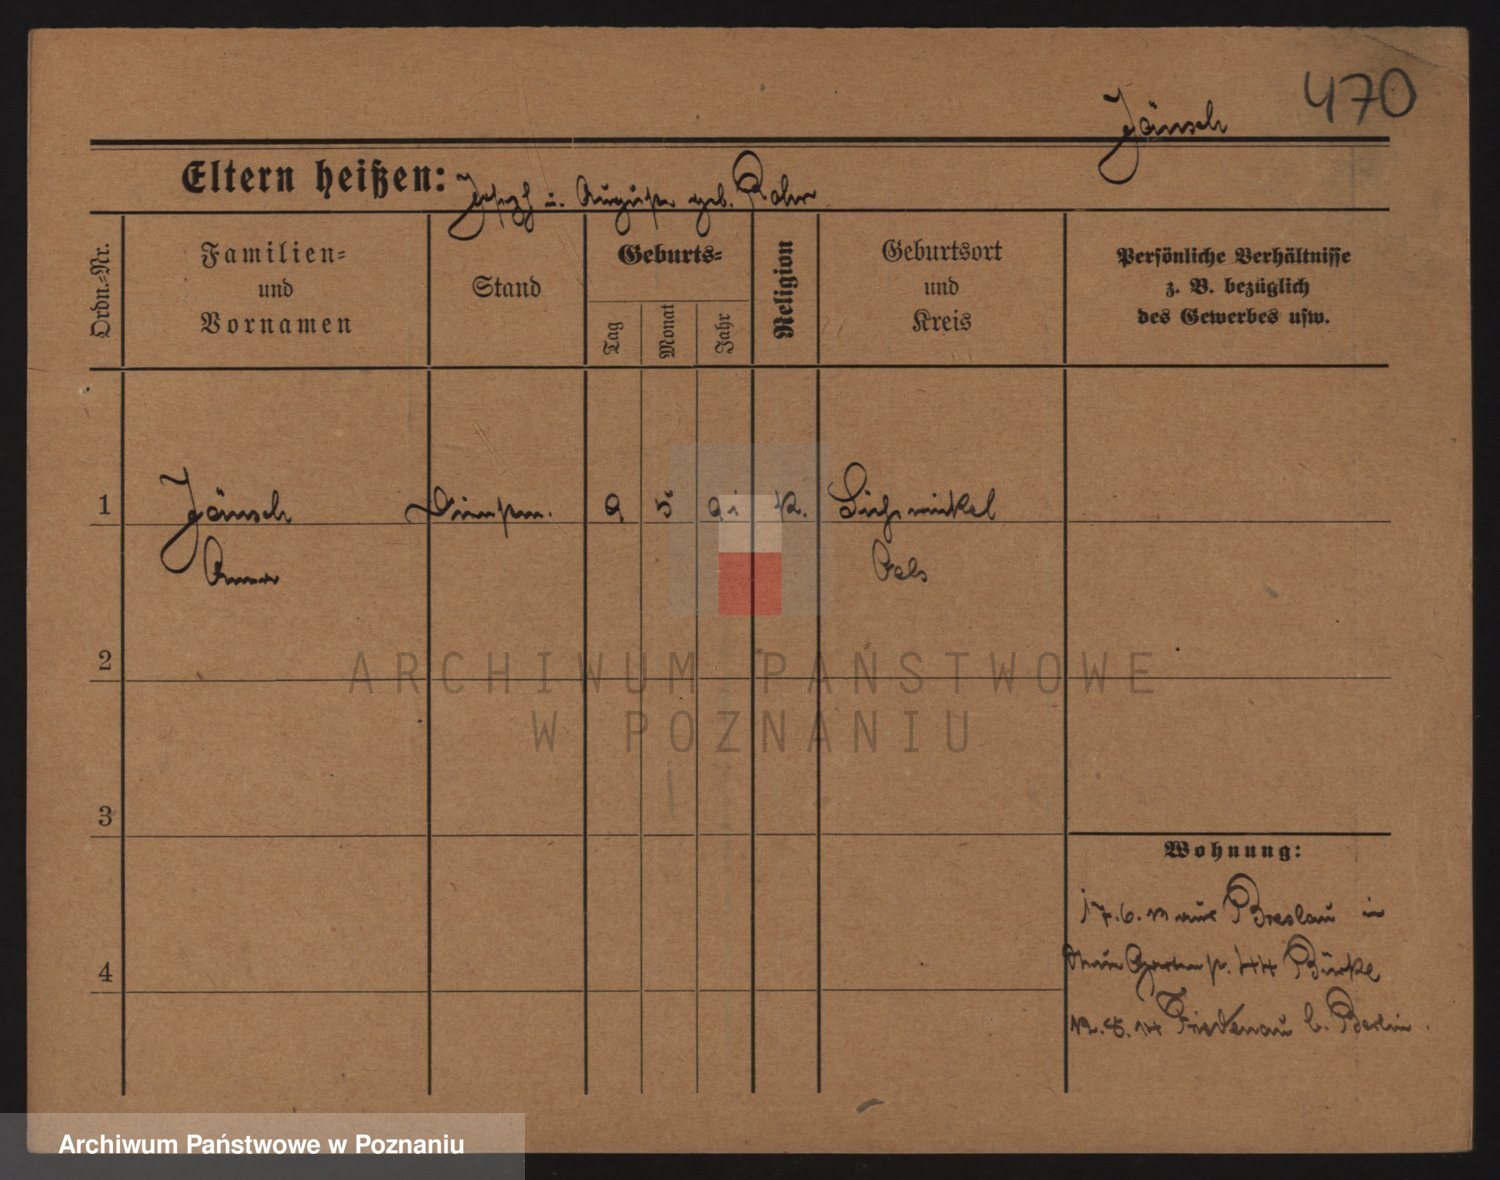 470
Jänsch
Eltern heißen: Joseph u. Auguste geb.
Ordn.-Nr.
Familien-
und
Vornamen
Stand
Geburts-
Tag
Monat
Jahr
Religion
Geburtsort
und
Kreis
Persönliche Verhältnisse
z. B. bezüglich
des Gewerbes usw.
1 Jänsch 9 5 91 K.
Anna Oels
2
3
4
Wohnung:
17. 6. aus Breslau in
Gartenstr. 14
Friedenau b. Berlin.
ARCHIWUM PAŃSTWOWE
W POZNANIU
Archiwum Państwowe w Poznaniu